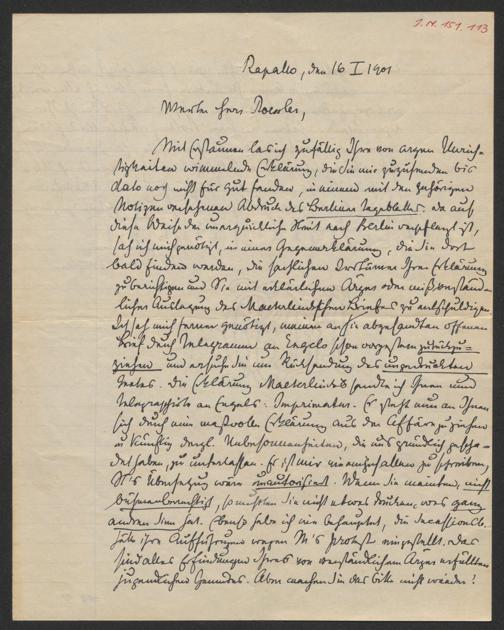 J.N. 151.113
Rapallo, den 16 I 1901
Werter Herr Roessler,
Mit Erstaunen las ich zufällig Ihre von argen Unrich-
tigkeiten wimmelnde Erklärung, die Sie mir zuzusenden bis
dato noch nicht für gut fanden, in einem mit den gehörigen
Notizen versehenen Abdruck des Berliner Tageblatts. Da auf
diese Weise der unerquickliche Streit nach Berlin verpflanzt ist,
sah ich mich genötigt, in einer Gegenerklärung, die Sie dort
bald finden werden, die sachlichen Irrtümer Ihrer Erklärung
zu berichtigen und Sie mit erklärlichem Ärger oder mißverständ-
licher Auslegung des Maeterlinckschen Briefes zu entschuldigen.
Ich sah mich ferner genötigt, meinen an Sie abgesandten offenen
Brief durch Telegramm an Engels schon vorgestern zurückzu-
ziehen und ersuche Sie um Rücksendung des ungedruckten
Textes. Die Erklärung Maeterlincks sandte ich Ihnen und
telegraphierte an Engels: Imprimatur. Es steht nun an Ihnen
sich durch eine maßvolle Erklärung aus der Affäre zu ziehen
u. künftig dergl. Unbesonnenheiten, die uns gründlich gescha-
det haben, zu unterlassen. Es ist mir nie eingefallen zu schreiben,
M's Übersetzung wäre unautorisiert. Wenn Sie meinten, nicht
bühnenberechtigt, so mußten Sie nicht etwas drucken, was ganz
andren Sinn hat. Ebenso habe ich nie behauptet, die Secessionsb.
hätte ihre Aufführungen wegen M's Protest eingestellt. Das
sind alles Erfindungen Ihres von verständlichem Ärger erfüllten
jugendlichen Gemütes. Aber machen Sie das bitte nicht wieder!